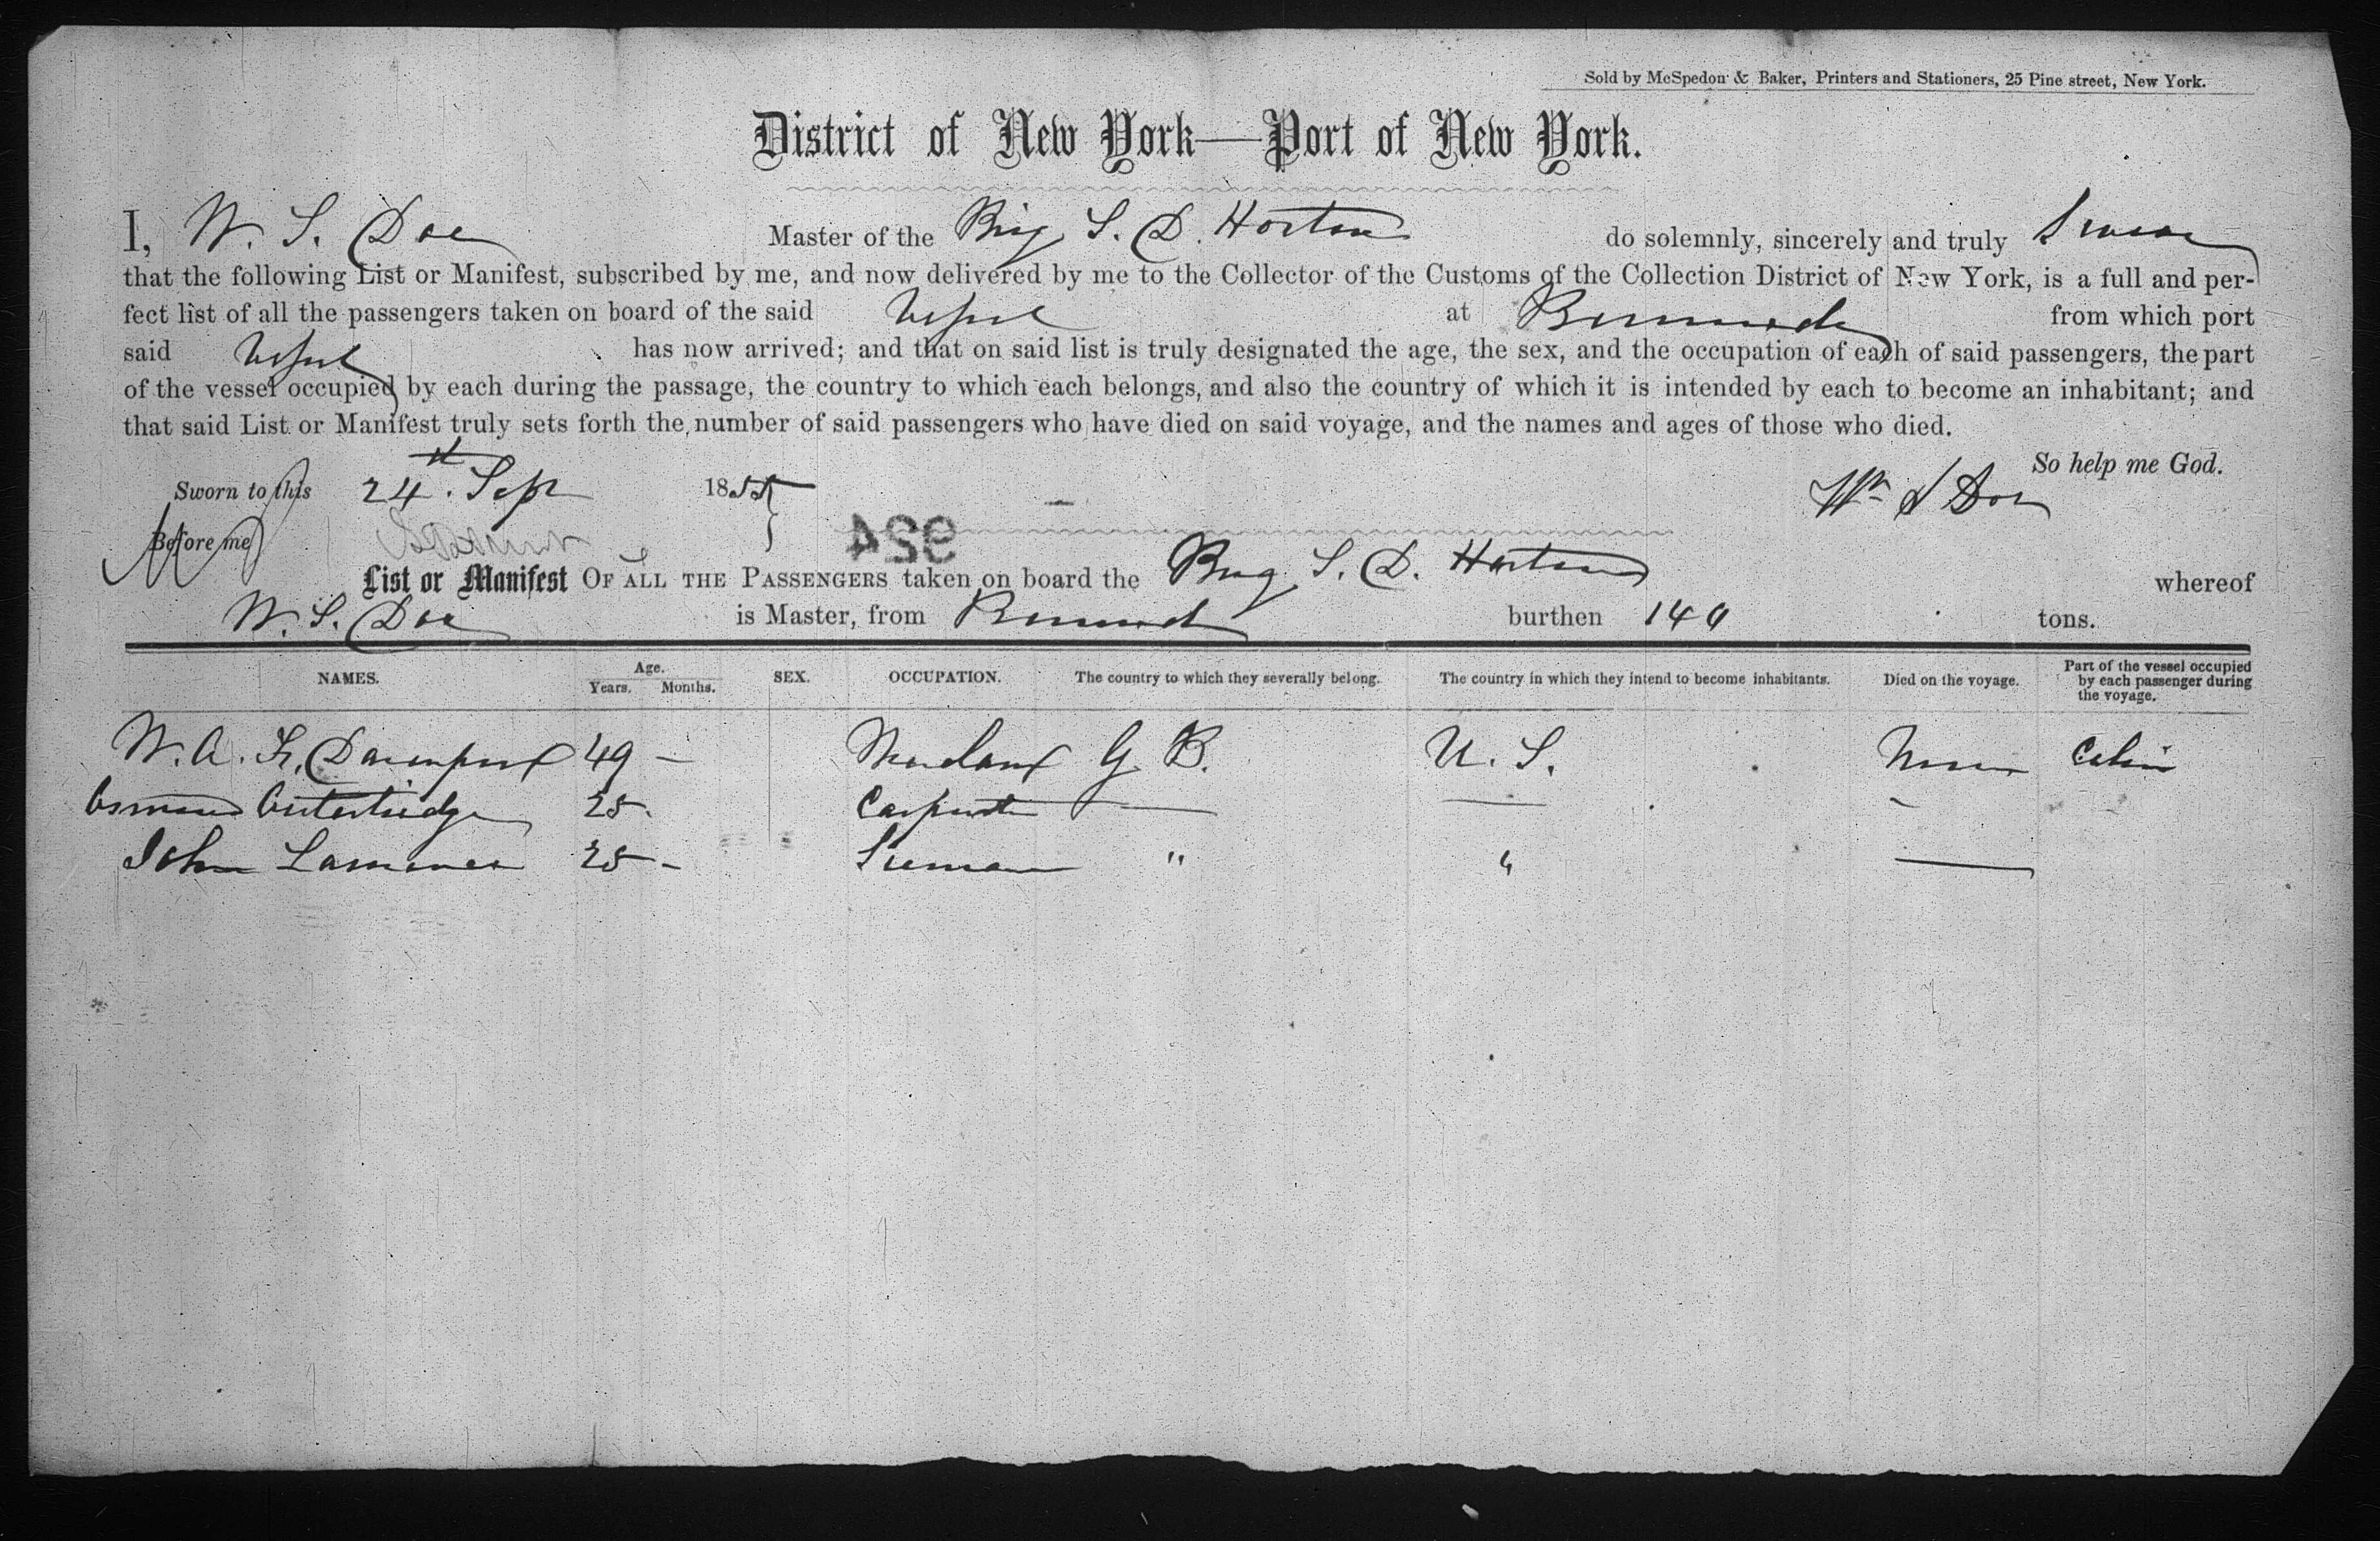 Sold by McSpedon & Baker, Printers and Stationers, 25 Pine street, New York.
District of New York—Port of New York.
I, W. S. Doe Master of the Brig S. D. Horton do solemnly, sincerely and truly Swear
that the following List or Manifest, subscribed by me, and now delivered by me to the Collector of the Customs of the Collection District of New York, is a full and per-
fect list of all the passengers taken on board of the said Vessel at Bermuda from which port
said Vessel has now arrived; and that on said list is truly designated the age, the sex, and the occupation of each of said passengers, the part
of the vessel occupied by each during the passage, the country to which each belongs, and also the country of which it is intended by each to become an inhabitant; and
that said List or Manifest truly sets forth the number of said passengers who have died on said voyage, and the names and ages of those who died.
So help me God.
Sworn to this 24th Sep 1855 Wm S Doe
Before me
924
List or Manifest OF ALL THE PASSENGERS taken on board the Brig S. D. Horton whereof
W. S. Doe is Master, from Bermuda burthen 149 tons.
NAMES. Age. Years. Months. SEX. OCCUPATION. The country to which they severally belong. The country in which they intend to become inhabitants. Died on the voyage. Part of the vessel occupied by each passenger during the voyage.
W. A. F. Davenport 49 — G. B. U. S. None Cabin
Osmond Outerbridge 25 Carpenter — — —
John 25 - Seaman " " —